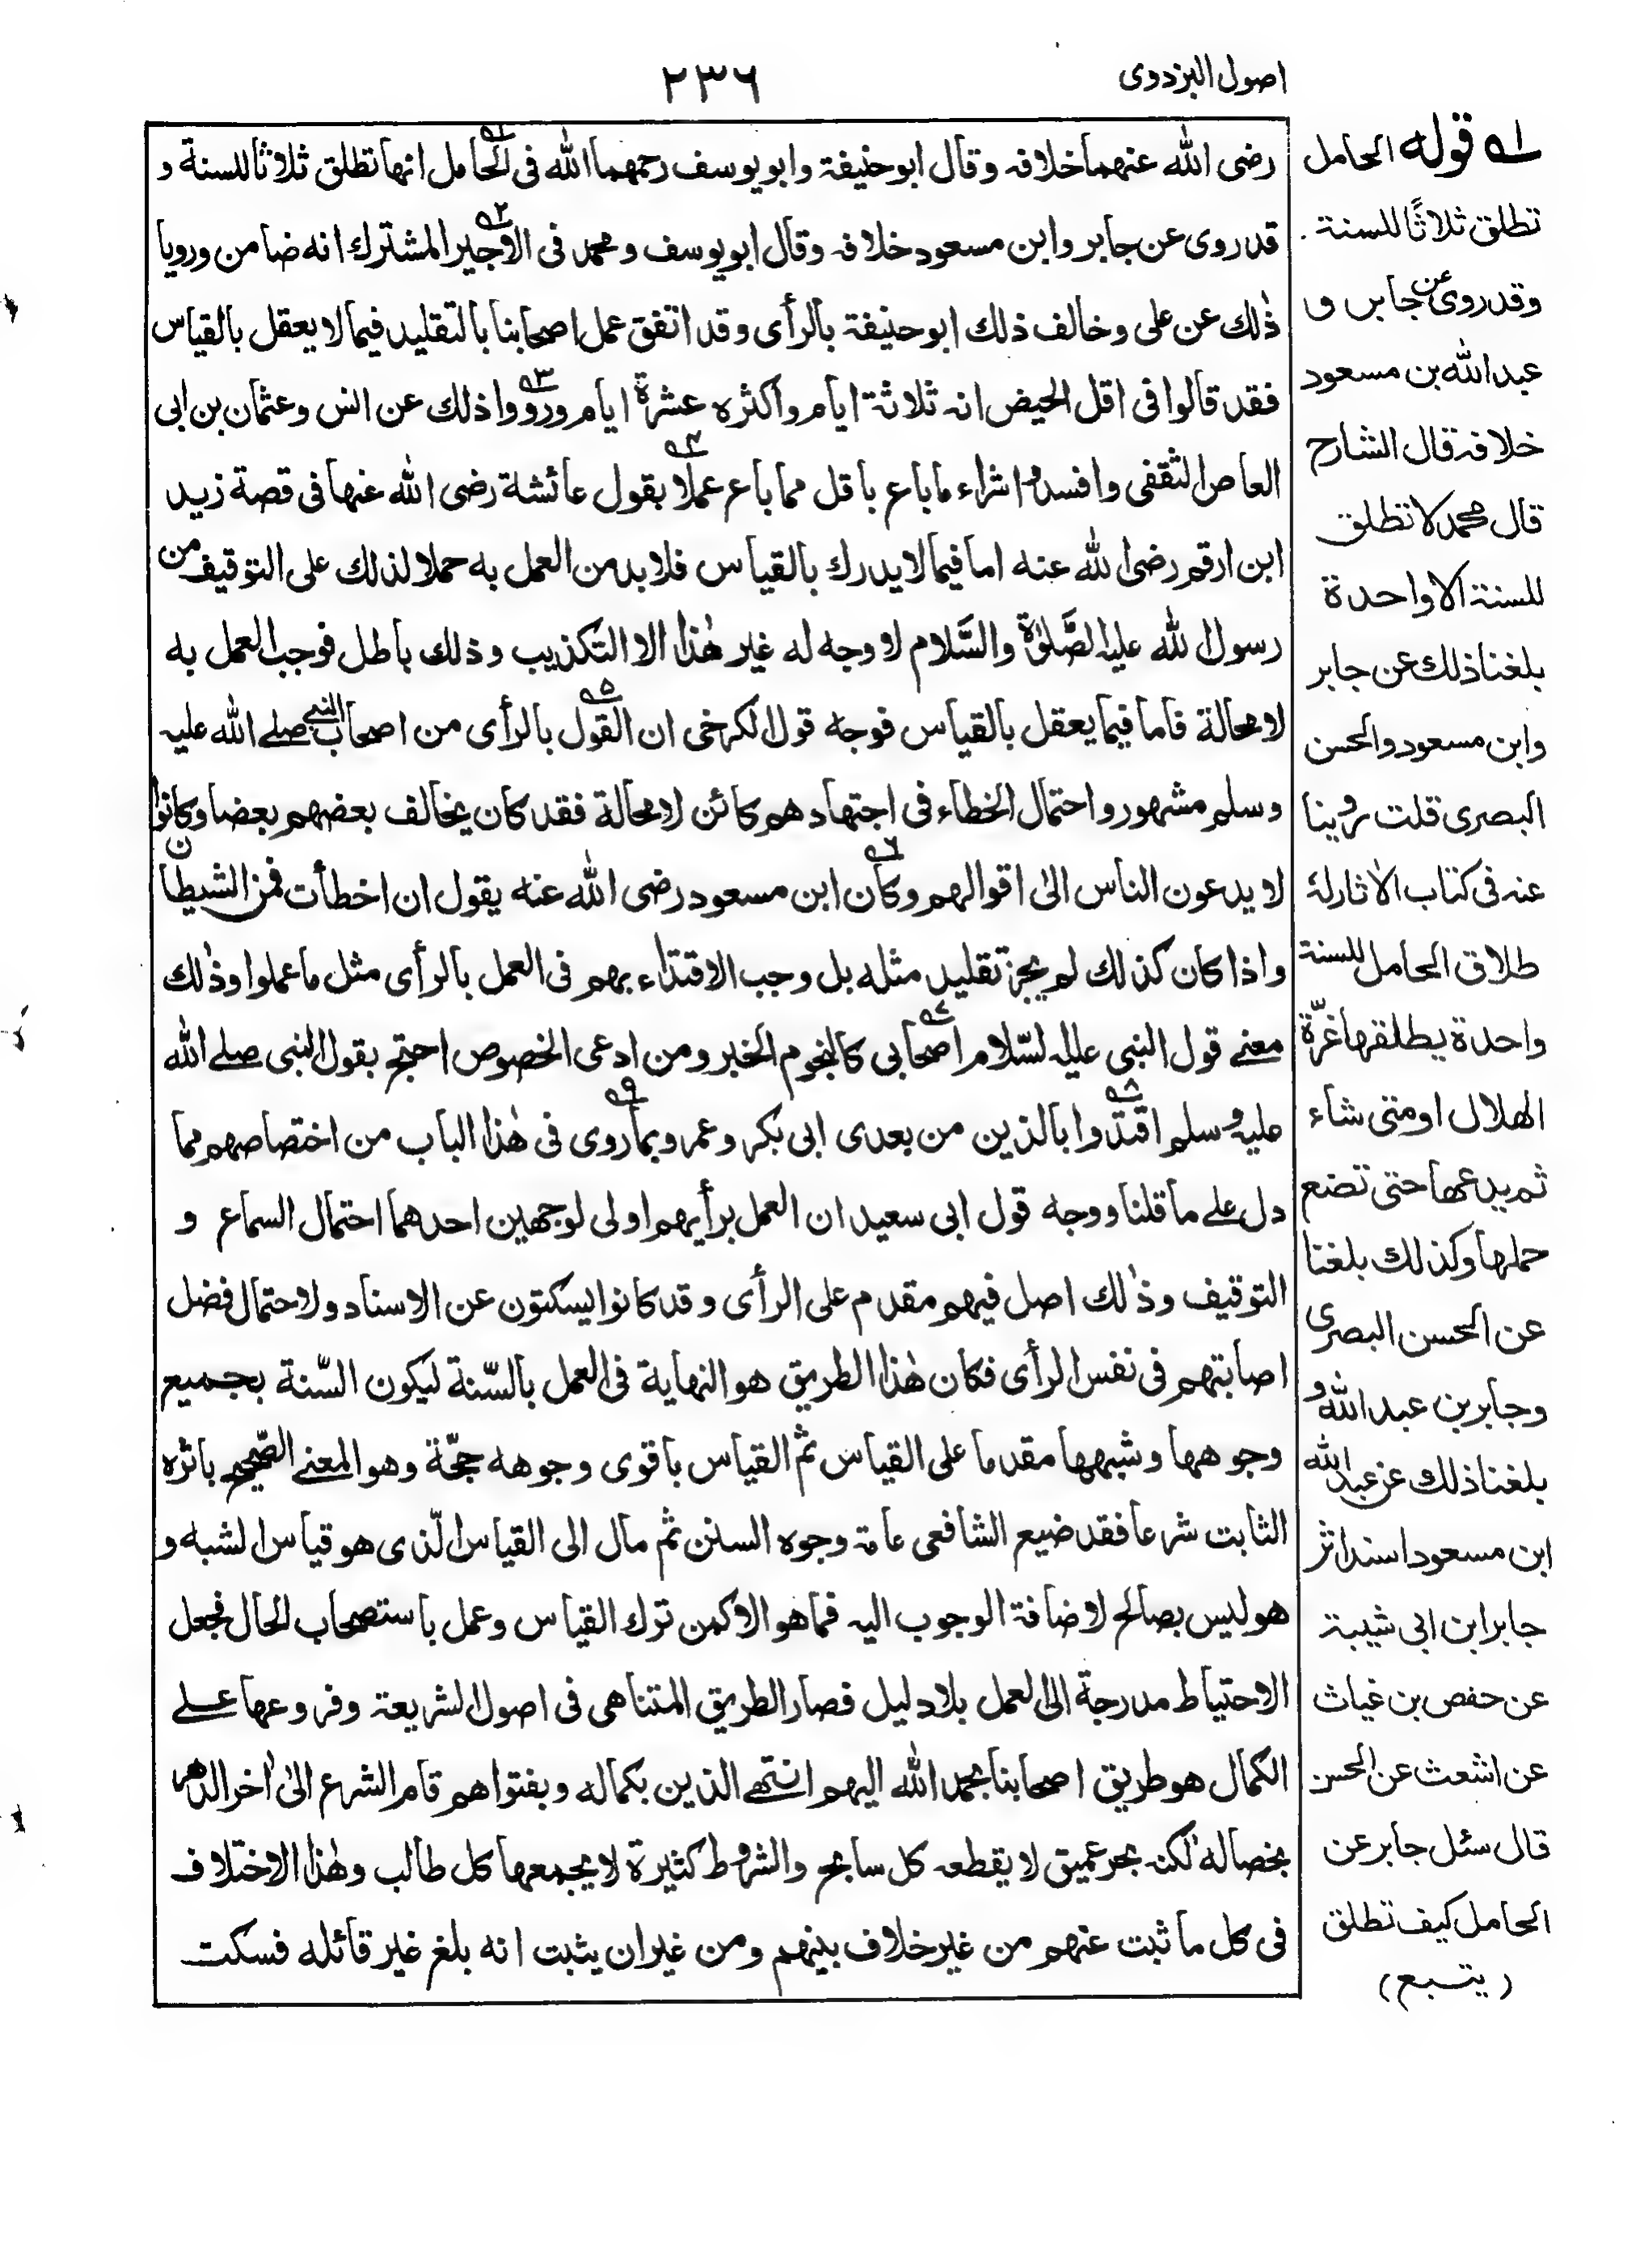 اصول البزدوی
۲۳۶
رضی اللہ عنہما خلافہ وقال ابو حنیفۃ وابو یوسف رحمہما اللہ فی الحامل انہا تطلق ثلاثا للسنۃ و
قدروی عن جابر وابن مسعود خلافہ وقال ابو یوسف ومحمد فی الاجیر المشترك انه ضامن ورویا
ذٰلك عن علی وخالف ذلك ابو حنیفۃ بالرأی وقد اتفق عمل اصحابنا بالتقلید فیما لا یعقل بالقیاس
فقد قالوا فی اقل الحیض انہ ثلاثۃ ایام واکثره عشرۃ ایام ورووا ذلك عن انس وعثمان بن ابی
العاص الثقفی وافسدوا شراء ما باع باقل مما باع عملا بقول عائشة رضی اللہ عنها فی قصة زید
ابن ارقم رضی اللہ عنه اما فیما لا یدرك بالقیاس فلا بد من العمل به حملا لذلك علی التوقیف من
رسول اللہ علیہ الصَّلوٰۃ والسَّلام لا وجه له غیر هٰذا الا التکذیب وذلك باطل فوجب العمل به
لا محالة فاما فیما یعقل بالقیاس فوجه قول الکرخی ان القول بالرأی من اصحاب النبی صلے اللہ علیہ
وسلم مشهور واحتمال الخطاء فی اجتهادهم کائن لا محالة فقد کان یخالف بعضهم بعضا وکانوا
لا یدعون الناس الیٰ اقوالهم وکان ابن مسعود رضی اللہ عنه یقول ان اخطأت فمن الشیطان
واذا کان کذلك لم یجز تقلید مثله بل وجب الاقتداء بهم فی العمل بالرأی مثل ما عملوا وذٰلك
معنے قول النبی علیہ السّلام اصحابی کالنجوم الخبر ومن ادعی الخصوص احتج بقول النبی صلے اللہ
علیہ وسلم اقتدوا بالذین من بعدی ابی بکر وعمر وبما روی فی هٰذا الباب من اختصاصهم مما
دل علے ما قلنا ووجه قول ابی سعید ان العمل برأیهم اولی لوجهین احدهما احتمال السماع و
التوقیف وذٰلك اصل فیهم مقدم علی الرأی وقد کانوا یسکتون عن الاسناد ولاحتمال فضل
اصابتهم فی نفس الرأی فکان هٰذا الطریق هو النهایة فی العمل بالسّنة لیکون السّنة بجمیع
وجوهها وشبهها مقدما علی القیاس ثم القیاس باقوی وجوهه حجّة وهو المعنے الصّحیح باثره
الثابت شرعا فقد ضیع الشافعی عامۃ وجوه السنن ثم مال الی القیاس الّذی هو قیاس الشبه و
هو لیس بصالح لاضافۃ الوجوب الیه فما هو الا کمن ترك القیاس وعمل باستصحاب الحال فجعل
الاحتیاط مدرجة الی العمل بلا دلیل فصار الطریق المتناهی فی اصول الشریعۃ وفروعها علے
الکمال هو طریق اصحابنا بحمد اللہ الیهم انتهے الذین بکماله وبفتواهم قام الشرع الیٰ اٰخر الدهر
بخصاله لکنہ بحر عمیق لا یقطعہ کل سابح والشروط کثیرة لا یجمعها کل طالب وهٰذا الاختلاف
فی کل ما ثبت عنهم من غیر خلاف بینهم ومن غیر ان یثبت انه بلغ غیر قائله فسکت
۱ہ قوله الحامل
تطلق ثلاثًا للسنۃ.
وقد روی عن جابر و
عبد اللہ بن مسعود
خلافہ قال الشارح
قال محمد لا تطلق
للسنۃ الا واحدة
بلغنا ذلك عن جابر
وابن مسعود والحسن
البصری قلت روینا
عنہ فی کتاب الاٰثار لہٗ
طلاق الحامل للسنة
واحدة یطلقها غرّة
الهلال او متی شاء
ثم یدعها حتی تضع
حملها وکذلك بلغنا
عن الحسن البصری
وجابر بن عبد اللہ و
بلغنا ذلك عن عبد اللہ
ابن مسعود اسند اثر
جابر ابن ابی شیبۃ
عن حفص بن غیاث
عن اشعث عن الحسن
قال سئل جابر عن
الحامل کیف تطلق
(یتبع)